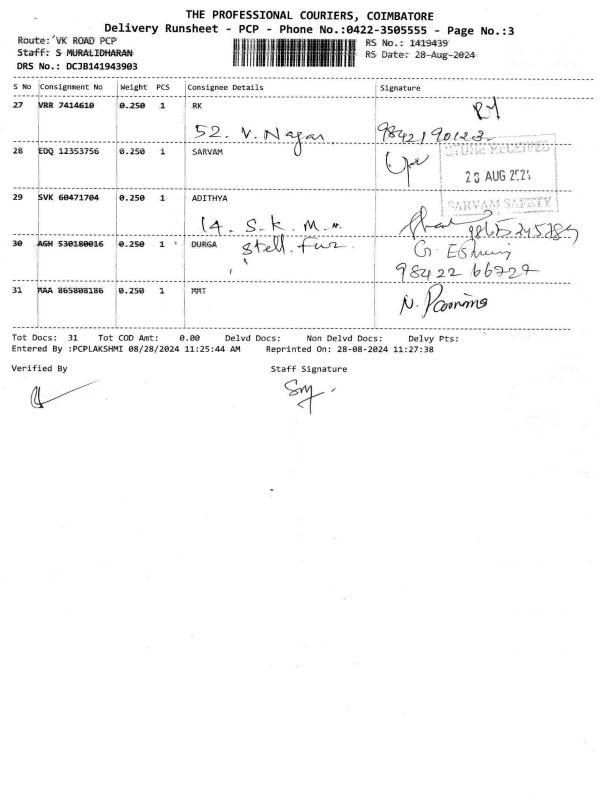 THE PROFESSIONAL COURIERS, COIMBATORE
Delivery Runsheet - PCP - Phone No.:0422-3505555 - Page No.:3
Route: VK ROAD PCP
RS No.: 1419439
Staff: S MURALIDHARAN
RS Date: 28-Aug-2024
DRS No.: DCJB141943903
S No Consignment No Weight PCS Consignee Details Signature
27 VRR 7414610 0.250 1 RK
52. V. Nagar
28 EDQ 12353756 0.250 1 SARVAM
STORE RECEIVED
28 AUG 2024
SARVAM SAFETY
29 SVK 60471704 0.250 1 ADITHYA
14. S.K.M.
30 AGH 530180016 0.250 1 DURGA
98422 66727
31 MAA 865808186 0.250 1 MMT
N.
Tot Docs: 31 Tot COD Amt: 0.00 Delvd Docs: Non Delvd Docs: Delvy Pts:
Entered By :PCPLAKSHMI 08/28/2024 11:25:44 AM Reprinted On: 28-08-2024 11:27:38
Verified By Staff Signature